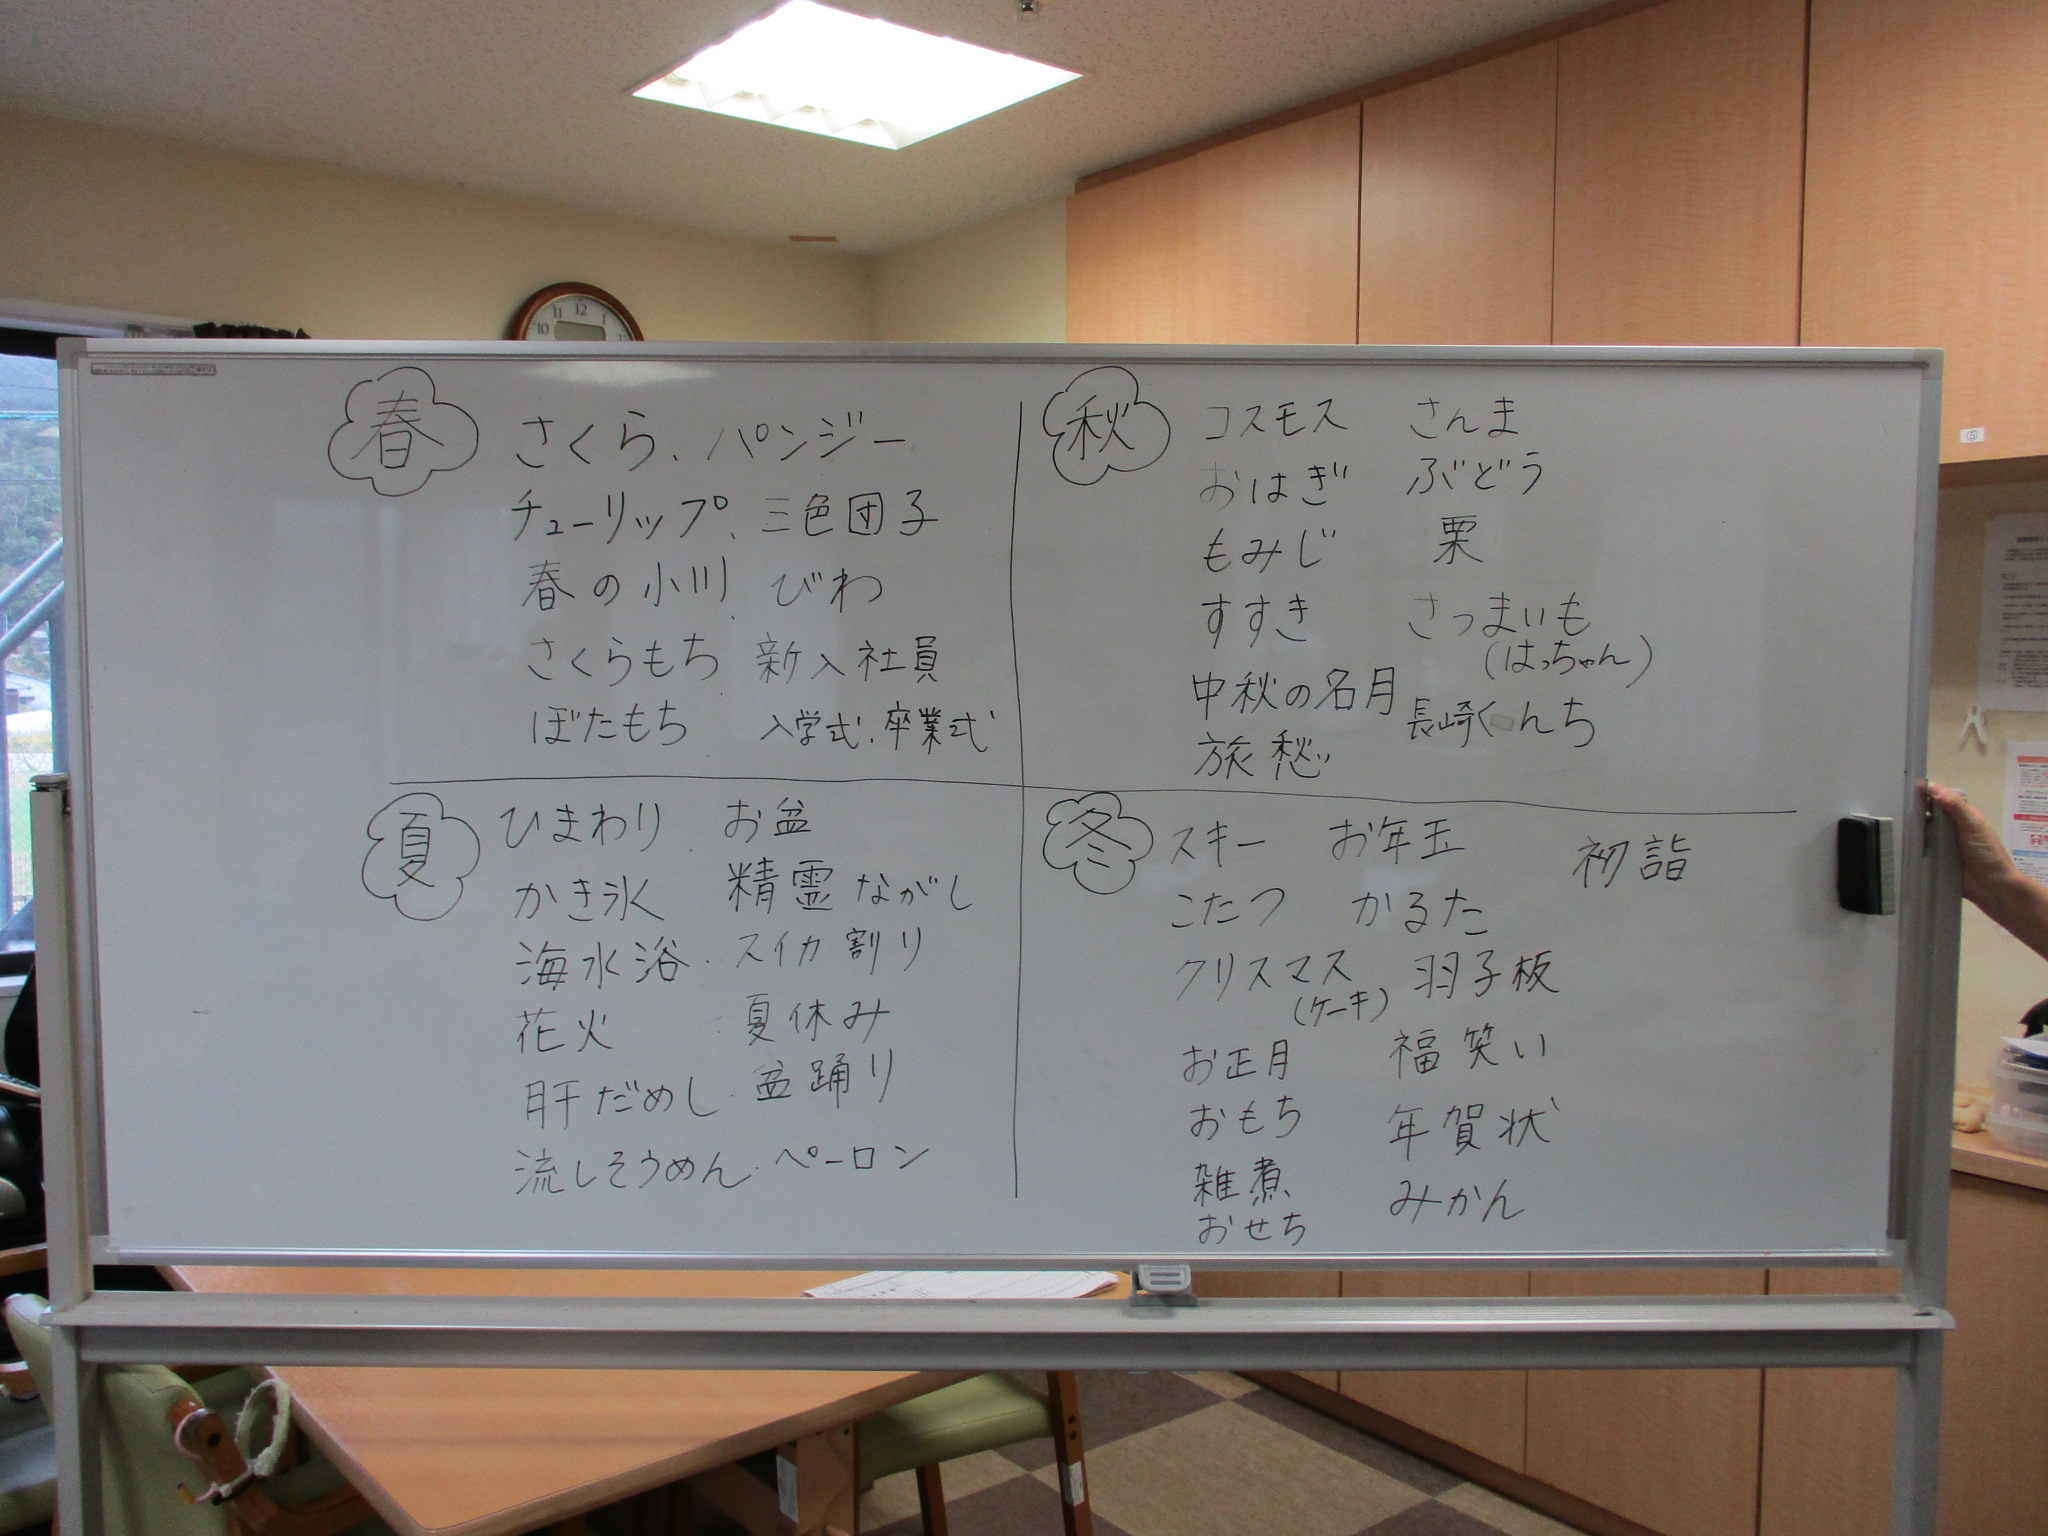 春
さくら、パンジー
チューリップ、三色団子
春の小川、びわ
さくらもち 新入社員
ぼたもち 入学式、卒業式
夏
ひまわり、お盆
かき氷 精霊ながし
海水浴、スイカ割り
花火 夏休み
肝だめし、盆踊り
流しそうめん、ペーロン
秋
コスモス さんま
おはぎ ぶどう
もみじ 栗
すすき さつまいも
(はっちゃん)
中秋の名月 長崎くんち
旅愁
冬
スキー お年玉 初詣
こたつ かるた
クリスマス 羽子板
(ケーキ)
お正月 福笑い
おもち 年賀状
雑煮 みかん
おせち
10 11 12 1
⑤